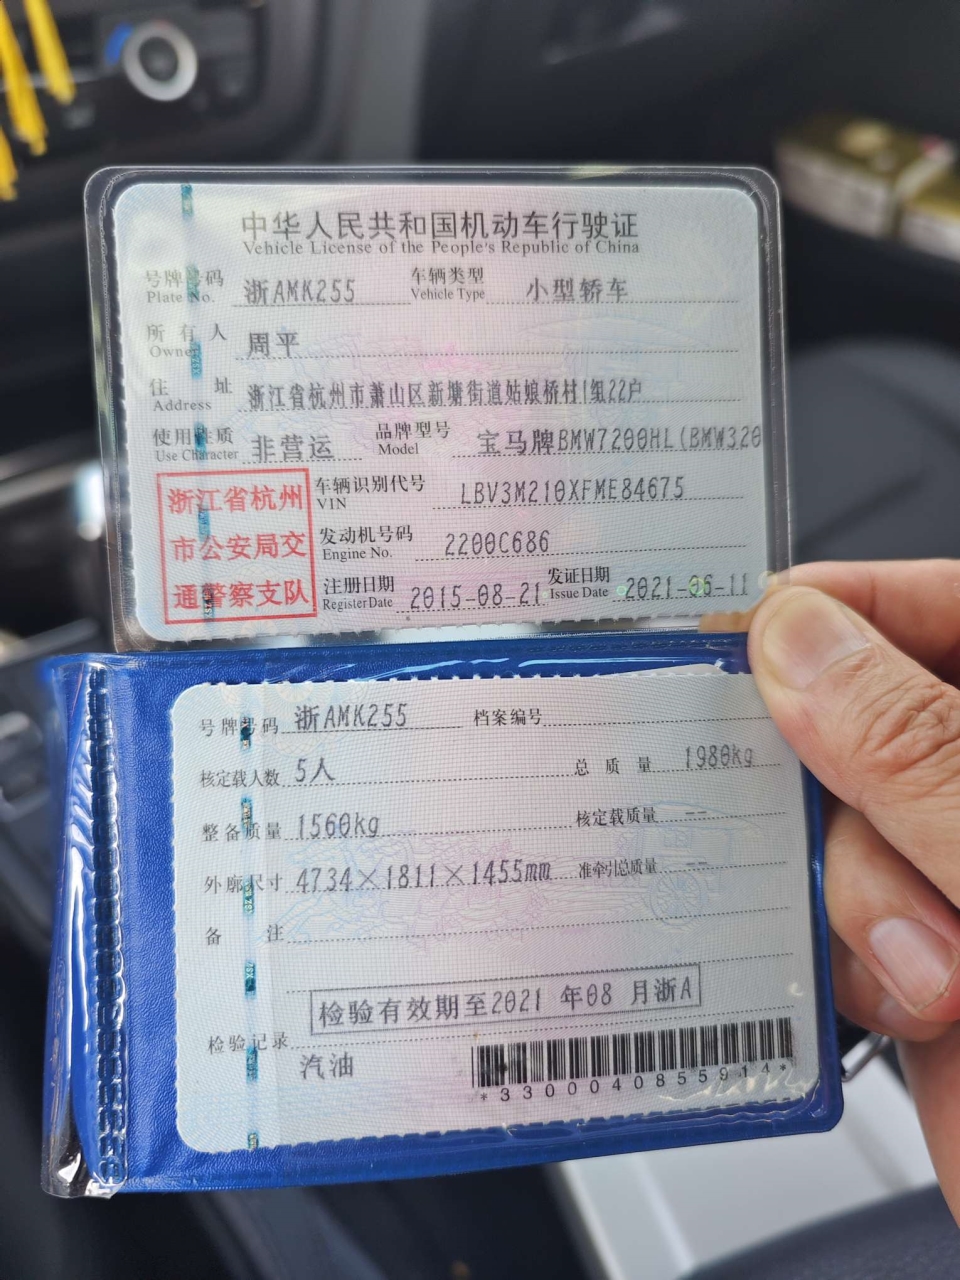 中华人民共和国机动车行驶证
Vehicle License of the People's Republic of China
号牌号码 浙AMK255 车辆类型 小型轿车
Plate No. Vehicle Type
所有人 周平
Owner
住址 浙江省杭州市萧山区新塘街道姑娘桥村1组22户
Address
使用性质 非营运 品牌型号 宝马牌BMW7200HL(BMW320
Use Character Model
浙江省杭州
市公安局交
通警察支队
车辆识别代号 LBV3M210XFME84675
VIN
发动机号码 2200C686
Engine No.
注册日期 2015-08-21 发证日期 2021-06-11
Register Date Issue Date
号牌号码 浙AMK255 档案编号
核定载人数 5人 总质量 1980kg
整备质量 1560kg 核定载质量 --
外廓尺寸 4734×1811×1455mm 准牵引总质量 --
备注
检验有效期至2021 年08 月浙A
检验记录
汽油
*3300040855914*